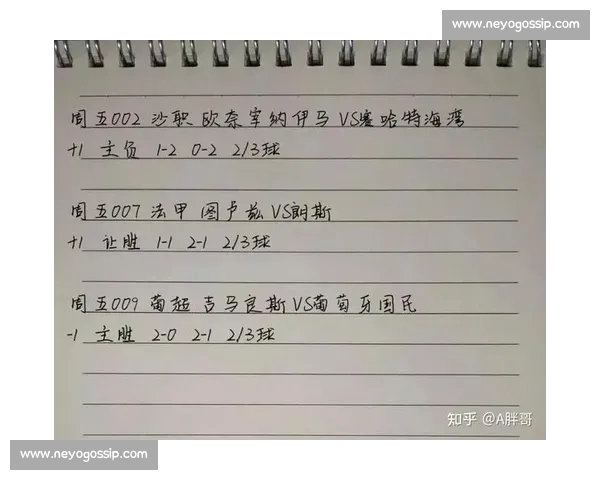 www.neyogossip.com
周五002 沙职 欧奈宰纳伊马VS塞哈特海湾
+1 主负 1-2 0-2 2/3球
周五007 法甲 图卢兹VS朗斯
+1 让胜 1-1 2-1 2/3球
周五009 葡超 吉马良斯VS葡萄牙国民
-1 主胜 2-0 2-1 2/3球
知乎 @A胖哥
www.neyogossip.com